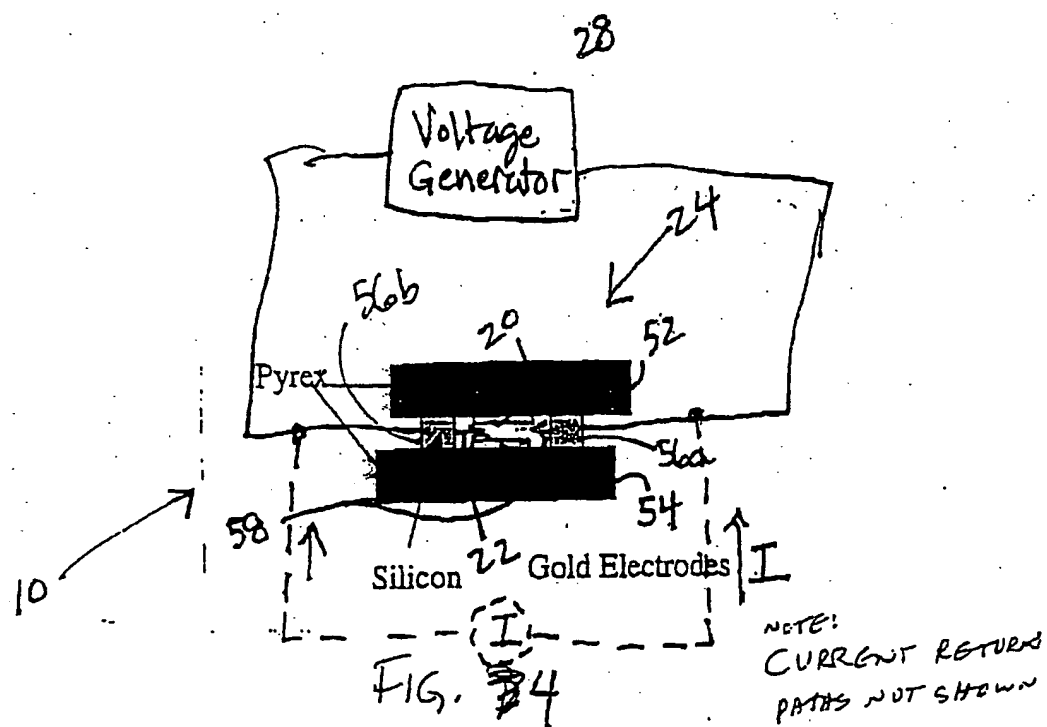 28
Voltage
Generator
24
56b
20
52
Pyrex
56a
58
54
22
Silicon
Gold Electrodes
I
10
I
NOTE:
CURRENT RETURN
PATHS NOT SHOWN
FIG. 4